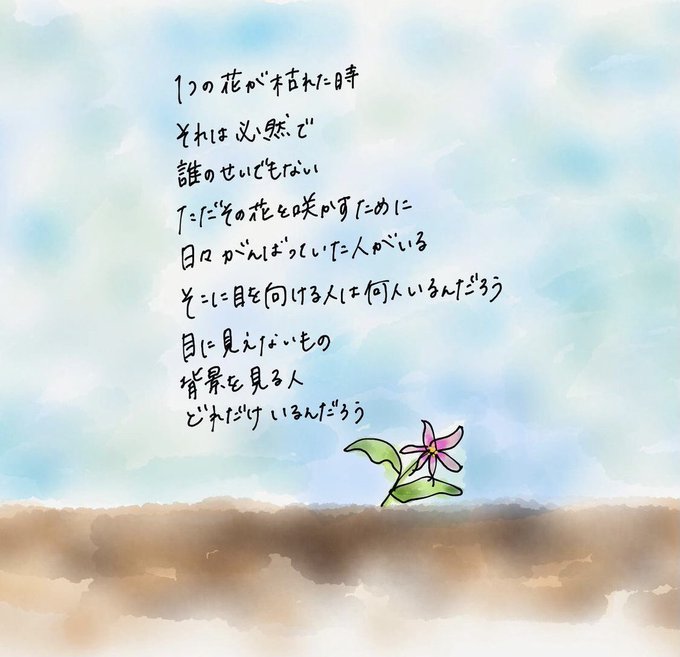 1つの花が枯れた時
それは必然で
誰のせいでもない
ただその花を咲かすために
日々がんばっていた人がいる
そこに目を向ける人は何人いるんだろう
目に見えないもの
背景を見る人
どれだけいるんだろう